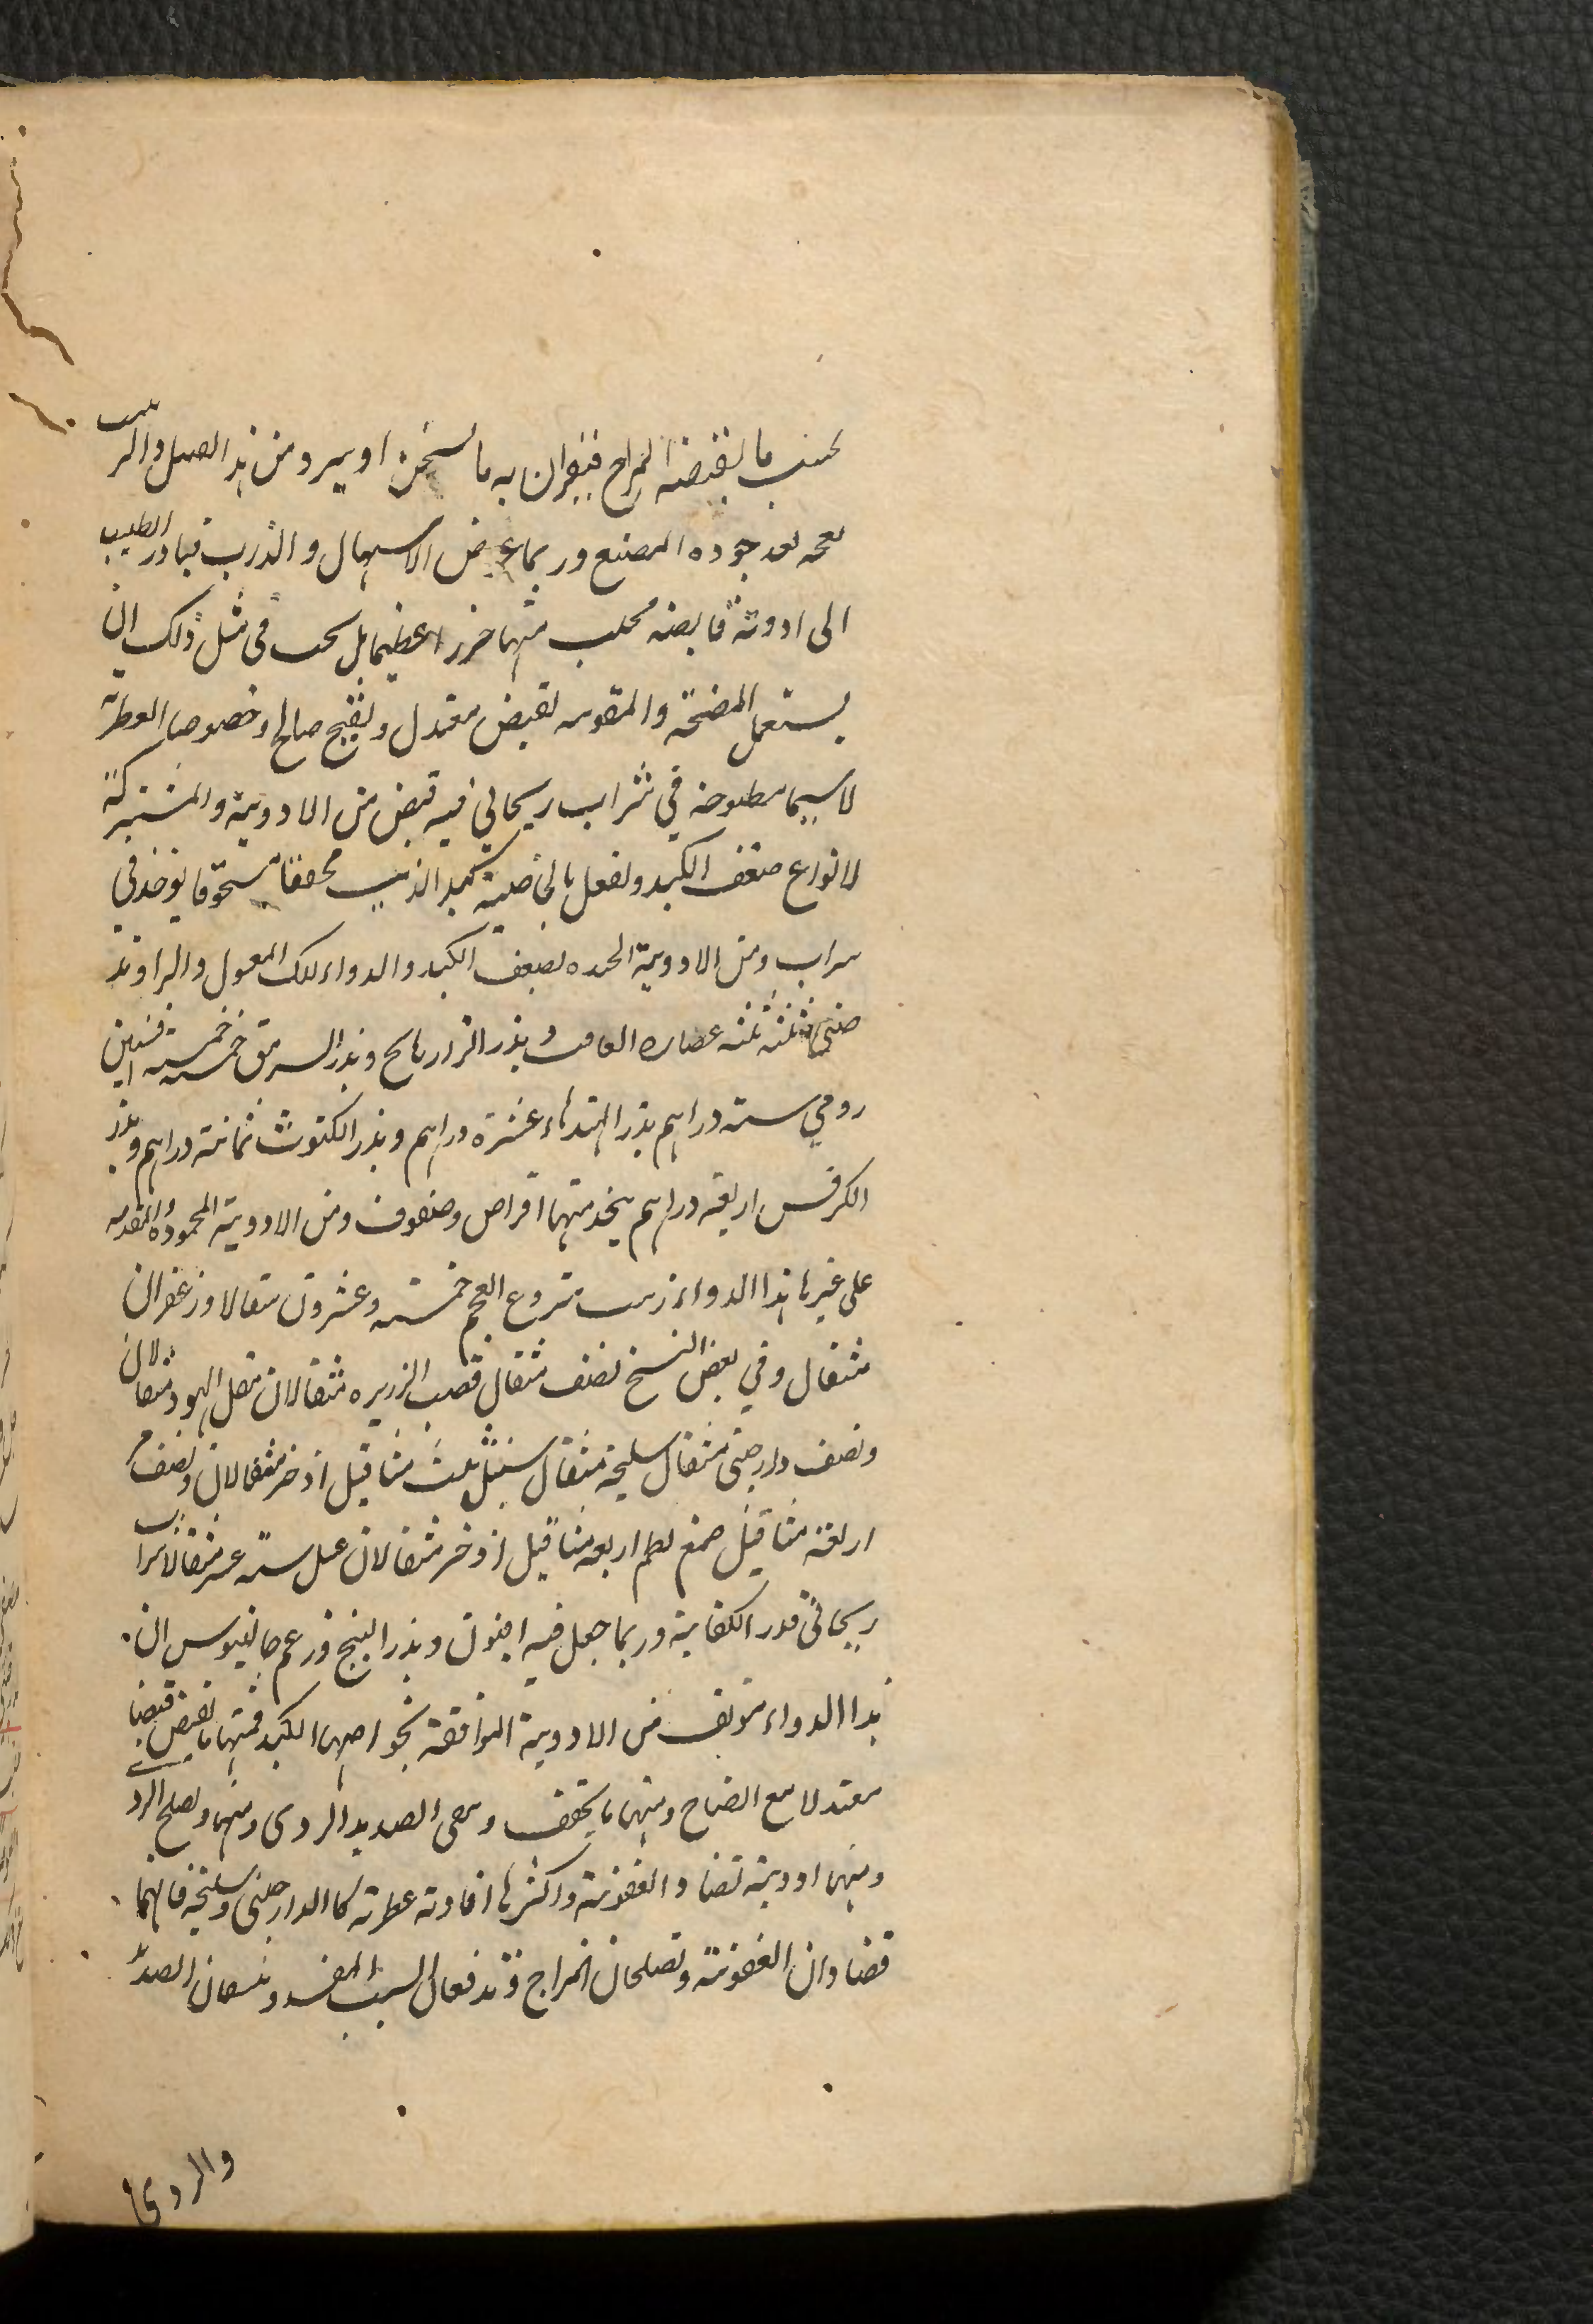 بحسب ما يقتضيه المزاج فيقرن به ما يسخن او يبرد ومن هذا القبيل والزبيب
بعجمه بعد جوده المضغ وربما عرض الاسهال والذرب فيبادر الطبيب
الى ادوية قابضه فيجلب منها ضررا عظيما بل يجب فى مثل ذلك ان
يستعمل المفتحة والمقويه بقبض معتدل وتفتيح صالح وخصوصا العطرية
لاسيما مطبوخه في شراب ريحاني فيه قبض من الادوية والمشتركة
لانواع ضعف الكبد وتفعل بالخاصية كبد الذئب مجففا مسحوقا يؤخذ في
شراب ومن الادوية الجيده لضعف الكبد والدواء لك المغسول والراوند
صينى ثلثه ثلثه عصاره الغافت وبذر الرازيانج وبذر السرمق خمسه خمسه افسنتين
رومي سته دراهم بذر الهندباء عشرة دراهم وبذر الكشوث ثمانية دراهم وبذر
الكرفس اربعة دراهم يتخذ منها اقراص وصفوف ومن الادوية المحموده والمقدمه
على غيرها هذا الدواء زبيب منزوع العجم خمسه وعشرون مثقالا وزعفران
مثقال وفي بعض النسخ نصف مثقال قصب الذريره مثقالان مقل اليهود مثقالان
ونصف دارصينى مثقال سليخة مثقال سنبل ثلث مثاقيل اذخر مثقالان ونصف مر
اربعة مثاقيل صمغ البطم اربعه مثاقيل اذخر مثقالان عسل سته عشر مثقالا شراب
ريحانى قدر الكفاية وربما جعل فيه افيون وبذر البنج وزعم جالينوس ان
هذا الدواء مؤلف من الادوية الموافقة بخواصها الكبد فمنها ما يقبض قبضا
معتدلا مع انضاج ومنها ما يجفف وينقى الصديد الردى ومنها ويصلح الردى
ومنها ادوية تضاد العفونة واكثرها افاوية عطرته كالدارصينى وسليخه فانهما
تضادان العفونة وتصلحان المزاج وتدفعان السبب المفسد وينشفان الصديد
والردى